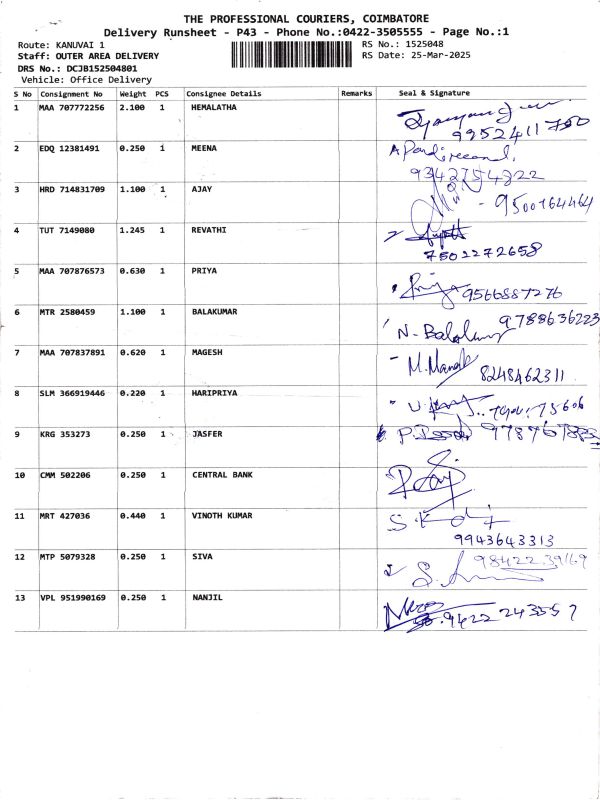 THE PROFESSIONAL COURIERS, COIMBATORE
Delivery Runsheet - P43 - Phone No.:0422-3505555 - Page No.:1
Route: KANUVAI 1 RS No.: 1525048
Staff: OUTER AREA DELIVERY RS Date: 25-Mar-2025
DRS No.: DCJB152504801
Vehicle: Office Delivery
S No Consignment No Weight PCS Consignee Details Remarks Seal & Signature
1 MAA 707772256 2.100 1 HEMALATHA
9952411750
2 EDQ 12381491 0.250 1 MEENA
9342754822
3 HRD 714831709 1.100 1 AJAY
- 9500164464
4 TUT 7149080 1.245 1 REVATHI
7502272658
5 MAA 707876573 0.630 1 PRIYA
Priya 9566887276
6 MTR 2580459 1.100 1 BALAKUMAR 9788636223
7 MAA 707837891 0.620 1 MAGESH
8248462311
8 SLM 366919446 0.220 1 HARIPRIYA
9 KRG 353273 0.250 1 JASFER
10 CMM 502206 0.250 1 CENTRAL BANK
11 MRT 427036 0.440 1 VINOTH KUMAR
9943643313
12 MTP 5079328 0.250 1 SIVA 98422 39169
13 VPL 951990169 0.250 1 NANJIL